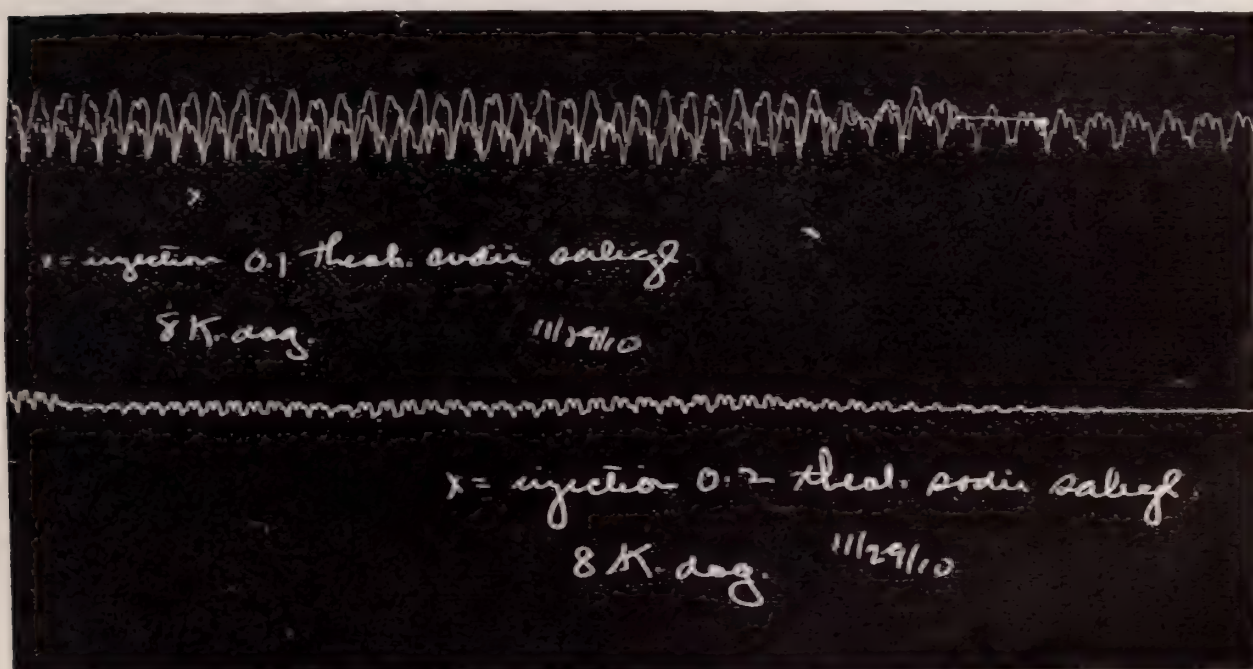 x
x = injection 0.1 theob. sodii salicyl
8 K. dog. 11/29/10
x = injection 0.2 theob. sodii salicyl
8 K. dog. 11/29/10